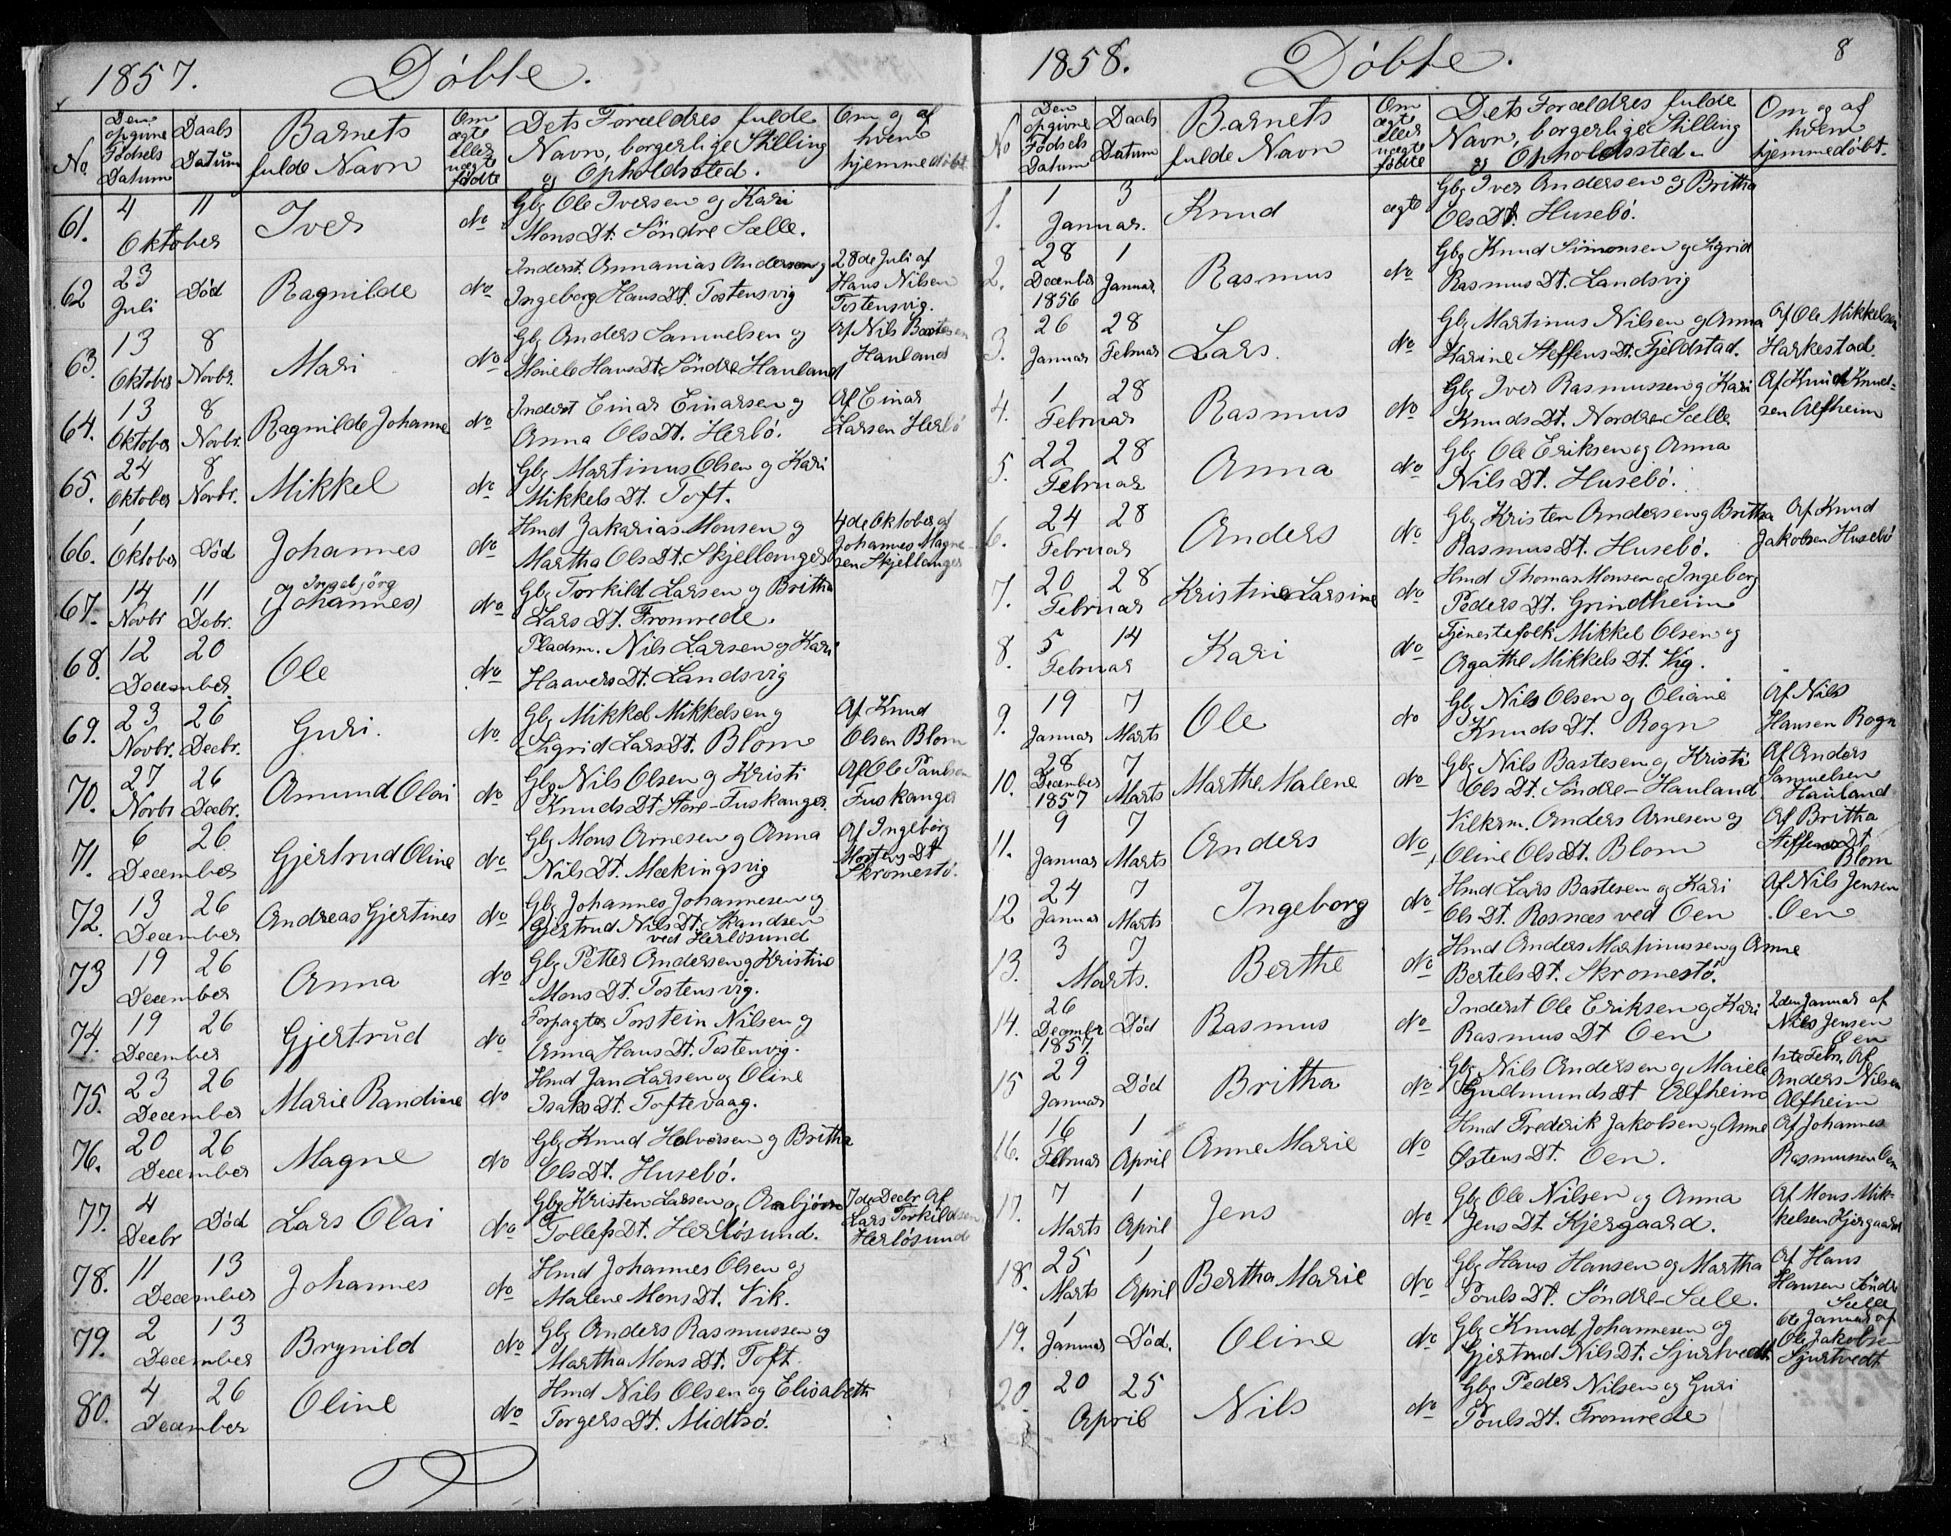 1857. Døbte.
No.
Den opgivne Fødsels Datum
Daabs Datum
Barnets fulde Navn
Om ægte eller uægte födte
Dets Forældres fulde Navn, borgerlige Stilling og Opholdssted.
Om og af hvem hjemmedøbt
61. 4 11 Oktober Iver do Gbr Ole Iversen og Kari
Mons Dt. Söndre Sælle.
62 23 Juli Död Ragnilde do Inderst. Annanias Andersen og
Ingeborg Hans Dt. Tostensvig
28de Juli af
Hans Nilsen
Tostensvig.
63. 13 Oktober 8 Novbr. Mari do Gbr Anders Samuelsen og
Hans Dt. Söndre Hauland
Af Nils
Hauland
64. 13 Oktober 8 Novbr. Ragnilde Johanne do Inderst Einar Einarsen og
Anna Ols Dt. Herlö.
Af Einar
Larsen Herlö
65. 24 Oktober 8 Novbr. Mikkel do Gbr Martinus Olsen og Kari
Mikkels Dt. Toft.
66. 1 Oktober Död Johannes do Hmd Zakarias Monsen og
Martha Ols Dt. Skjellanger
4de Oktober af
Johannes Magne-
sen Skjellanger
67. 14 Novbr 11 Debr. Johannes og Ingebjörg do Gbr Torkild Larsen og Britha
Lars Dt. Fromrede.
68. 12 20 December Ole do Pladsm. Nils Larsen og Kari
Haavers Dt. Landsvig
69. 23 Novbr. 26 Decbr. Guri. do Gbr Mikkel Mikkelsen og
Sigrid Lars Dt. Blom
Af Knud
Olsen Blom
70. 27 Novbr 26 Decbr. Amund Olai do Gbr Nils Olsen og Kristi
Knuds Dt. Store-Fuskanger
Af Ole Paulsen
Fuskanger
71. 6 26 December Gjertrud Oline do Gbr Mons Arnesen og Anna
Nils Dt. Mækingsvig
Af Ingeborg
Mortens Dt
Skromestö.
72. 13 26 December Andreas Gjertines do Gbr Johannes Johannesen og
Gjertrud Nils Dt. Skandsen
ved Herlösund
73 19 26 December Anna do Gbr Petter Andersen og Kristine
Mons Dt. Tostensvig.
74. 19 26 December Gjertrud do Forpagter Torstein Nilsen og
Anna Hans Dt. Tostenvig.
75. 23 26 December Marie Randine do Hmd Jan Larsen og Oline
Isaks Dt. Toftevaag.
76. 20 26 December Magne do Gbr Knud Halvorsen og Britha
Ols Dt. Husebö.
77. 4 Decbr Död Lars Olai do Gbr Kristen Larsen og Anbjörn
Tollefs Dt. Herlösund.
7de Decbr Af
Lars Torkildsen
Herlösund
78. 11 13 December Johannes do Hmd Johannes Olsen og
Malene Mons Dt. Vik.
79. 2 13 December Brynild do Gbr Anders Rasmussen og
Martha Mons Dt. Toft.
80. 4 26 December Oline do Hmd Nils Olsen og Elisabeth
Torgers Dt. Midtö.
1858. Döbte. 8
No
Den opgivne Fødsels Datum
Daabs Datum
Barnets fulde Navn
Om ægte eller uægte födte
Dets Forældres fulde Navn, borgerlige Stilling og Opholdssted.
Om og af hvem hjemmedøbt.
1. 1 3 Januar. Knud ægte Gbr Iver Andersen og Britha
Ols Dt. Husebö.
2. 28 December 1856 1 Januar Rasmus do Gbr Knud Simonsen og Sigrid
Rasmus Dt. Landsvig
3. 26 Januar 28 Februar Lars. do Gbr Martinus Nilsen og Anna
Karine Steffens Dt. Fjeldstad.
Af Ole Mikkelsen
Harkestad.
4. 1 28 Februar Rasmus do Gbr Iver Rasmussen og Kari
Knuds Dt. Nordre Sælle
Af Knud Knud-
sen Alfheim
5. 22 28 Februar Anna do Gbr Ole Eriksen og Anna
Nils Dt. Husebö.
6. 24 28 Februar Anders do Gbr Kristen Andersen og Britha
Rasmus Dt. Husebö.
Af Knud
Jakobsen Husebö
7. 20 28 Februar Kristine Larsine do Hmd Thomas Monsen og Ingeborg
Peders Dt. Grindheim
8. 5 14 Februar Kari do Tjenestefolk Mikkel Olsen og
Agathe Mikkels Dt. Vig.
9. 19 Januar 7 Marts Ole do Gbr Nils Olsen og Oliane
Knuds Dt. Rogn
Af Nils
Hansen Rogn
10. 28 December 1857 7 Marts Marthe Malene do Gbr Nils Bastesen og Kristi
Ols Dt. Söndre-Hauland
Af Anders
Samuelsen
Hauland
11. 9 Januar 7 Marts Anders do Vilkrm. Anders Arnesen og
Oline Ols Dt. Blom
Af Britha
Steffens Dt
Blom
12 24 Januar 7 Marts Ingeborg do Hmd Lars Bastesen og Kari
Ols Dt. Rosnæs ved Oen
Af Nils Jensen
Oen
13. 3 7 Marts. Berthe do Hmd Anders Martinussen og Anne
Bertels Dt. Skromestö.
14. 26 December 1857. Död Rasmus do Inderst Ole Eriksen og Kari
Rasmus Dt Oen
2den Januar af
Nils Jensen
Oen
15 29 Januar Död Britha do Gbr Nils Andersen og Maiele
Gudmunds Dt Alfheim
1ste Febr. Af
Anders Nilsen
Alfheim
16. 16 Februar 1 April Anne Marie do Hmd Frederik Jakobsen og Anne
Østens Dt. Oen.
Af Johannes
Rasmussen Oen
17. 7 Marts 1 April Jens do Gbr Ole Nilsen og Anna
Jens Dt. Kjergaard.
Af Mons Mik-
kelsen Kjergaard
18. 25 Marts 1 April Bertha Marie do Gbr Hans Hansen og Martha
Pouls Dt. Söndre-Sæle.
Af Hans
Hansen Söndre
Sælle
19. 1 Januar Död. Oline do Gbr Knud Johannesen og
Gjertrud Nils Dt. Sjurtvedt
6te Januar af
Ole Jakobsen
Sjurtvedt
20. 20 25 April Nils do Gbr Peder Nilsen og Guri
Pouls Dt. Fromrede